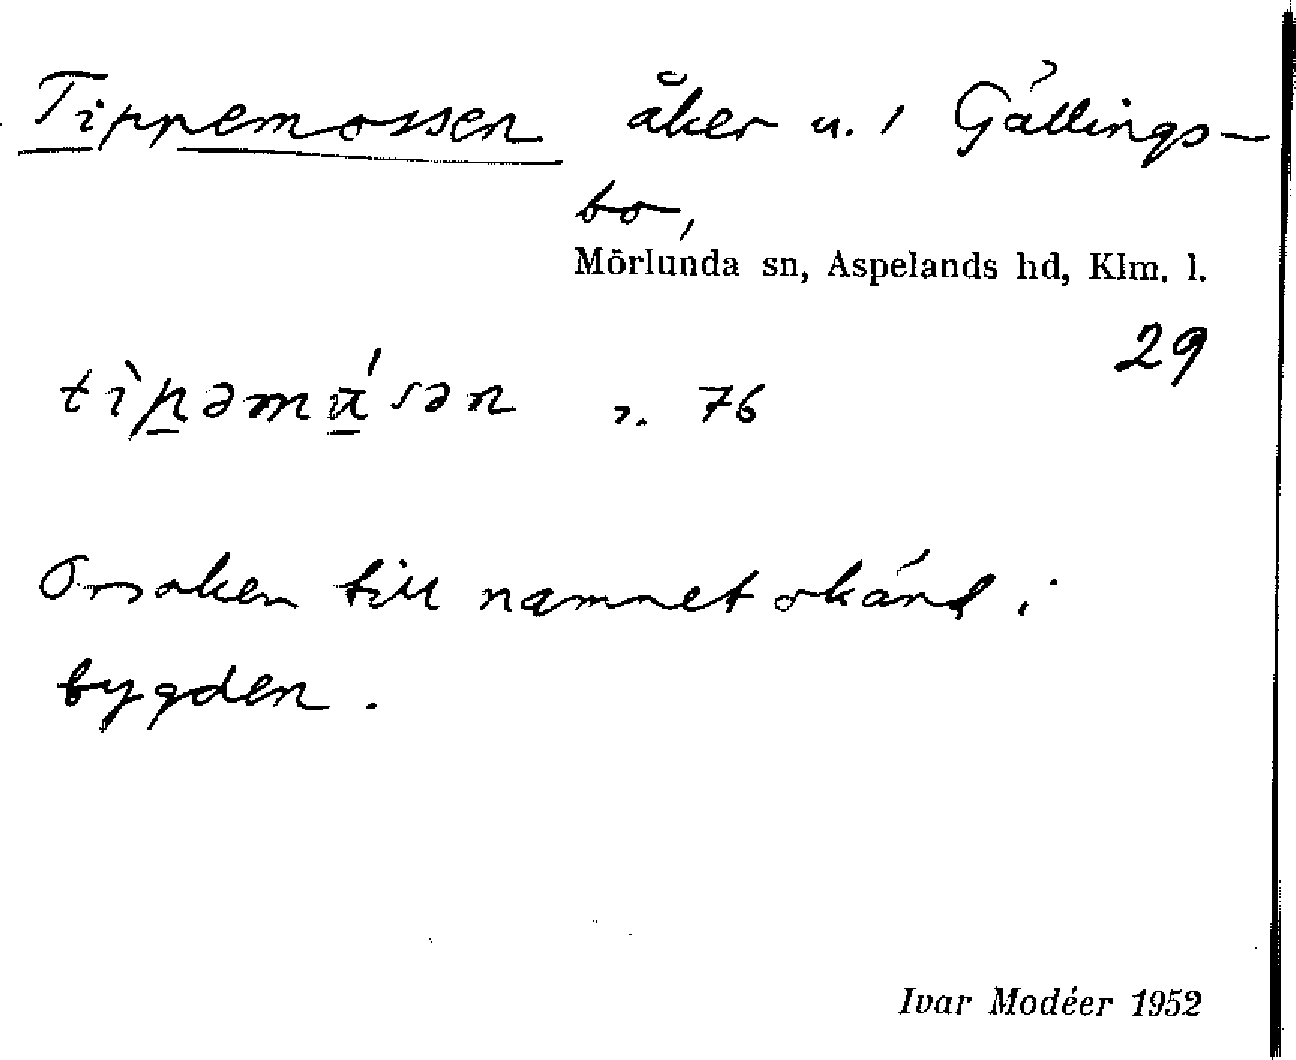 Tippemossen åker u. 1 Gällings-
bo,
Mörlunda sn, Aspelands hd, Klm. l.
29
tìpəmú̵sən n. 76
Orsaken till namnet okänd i
bygden.
Ivar Modéer 1952